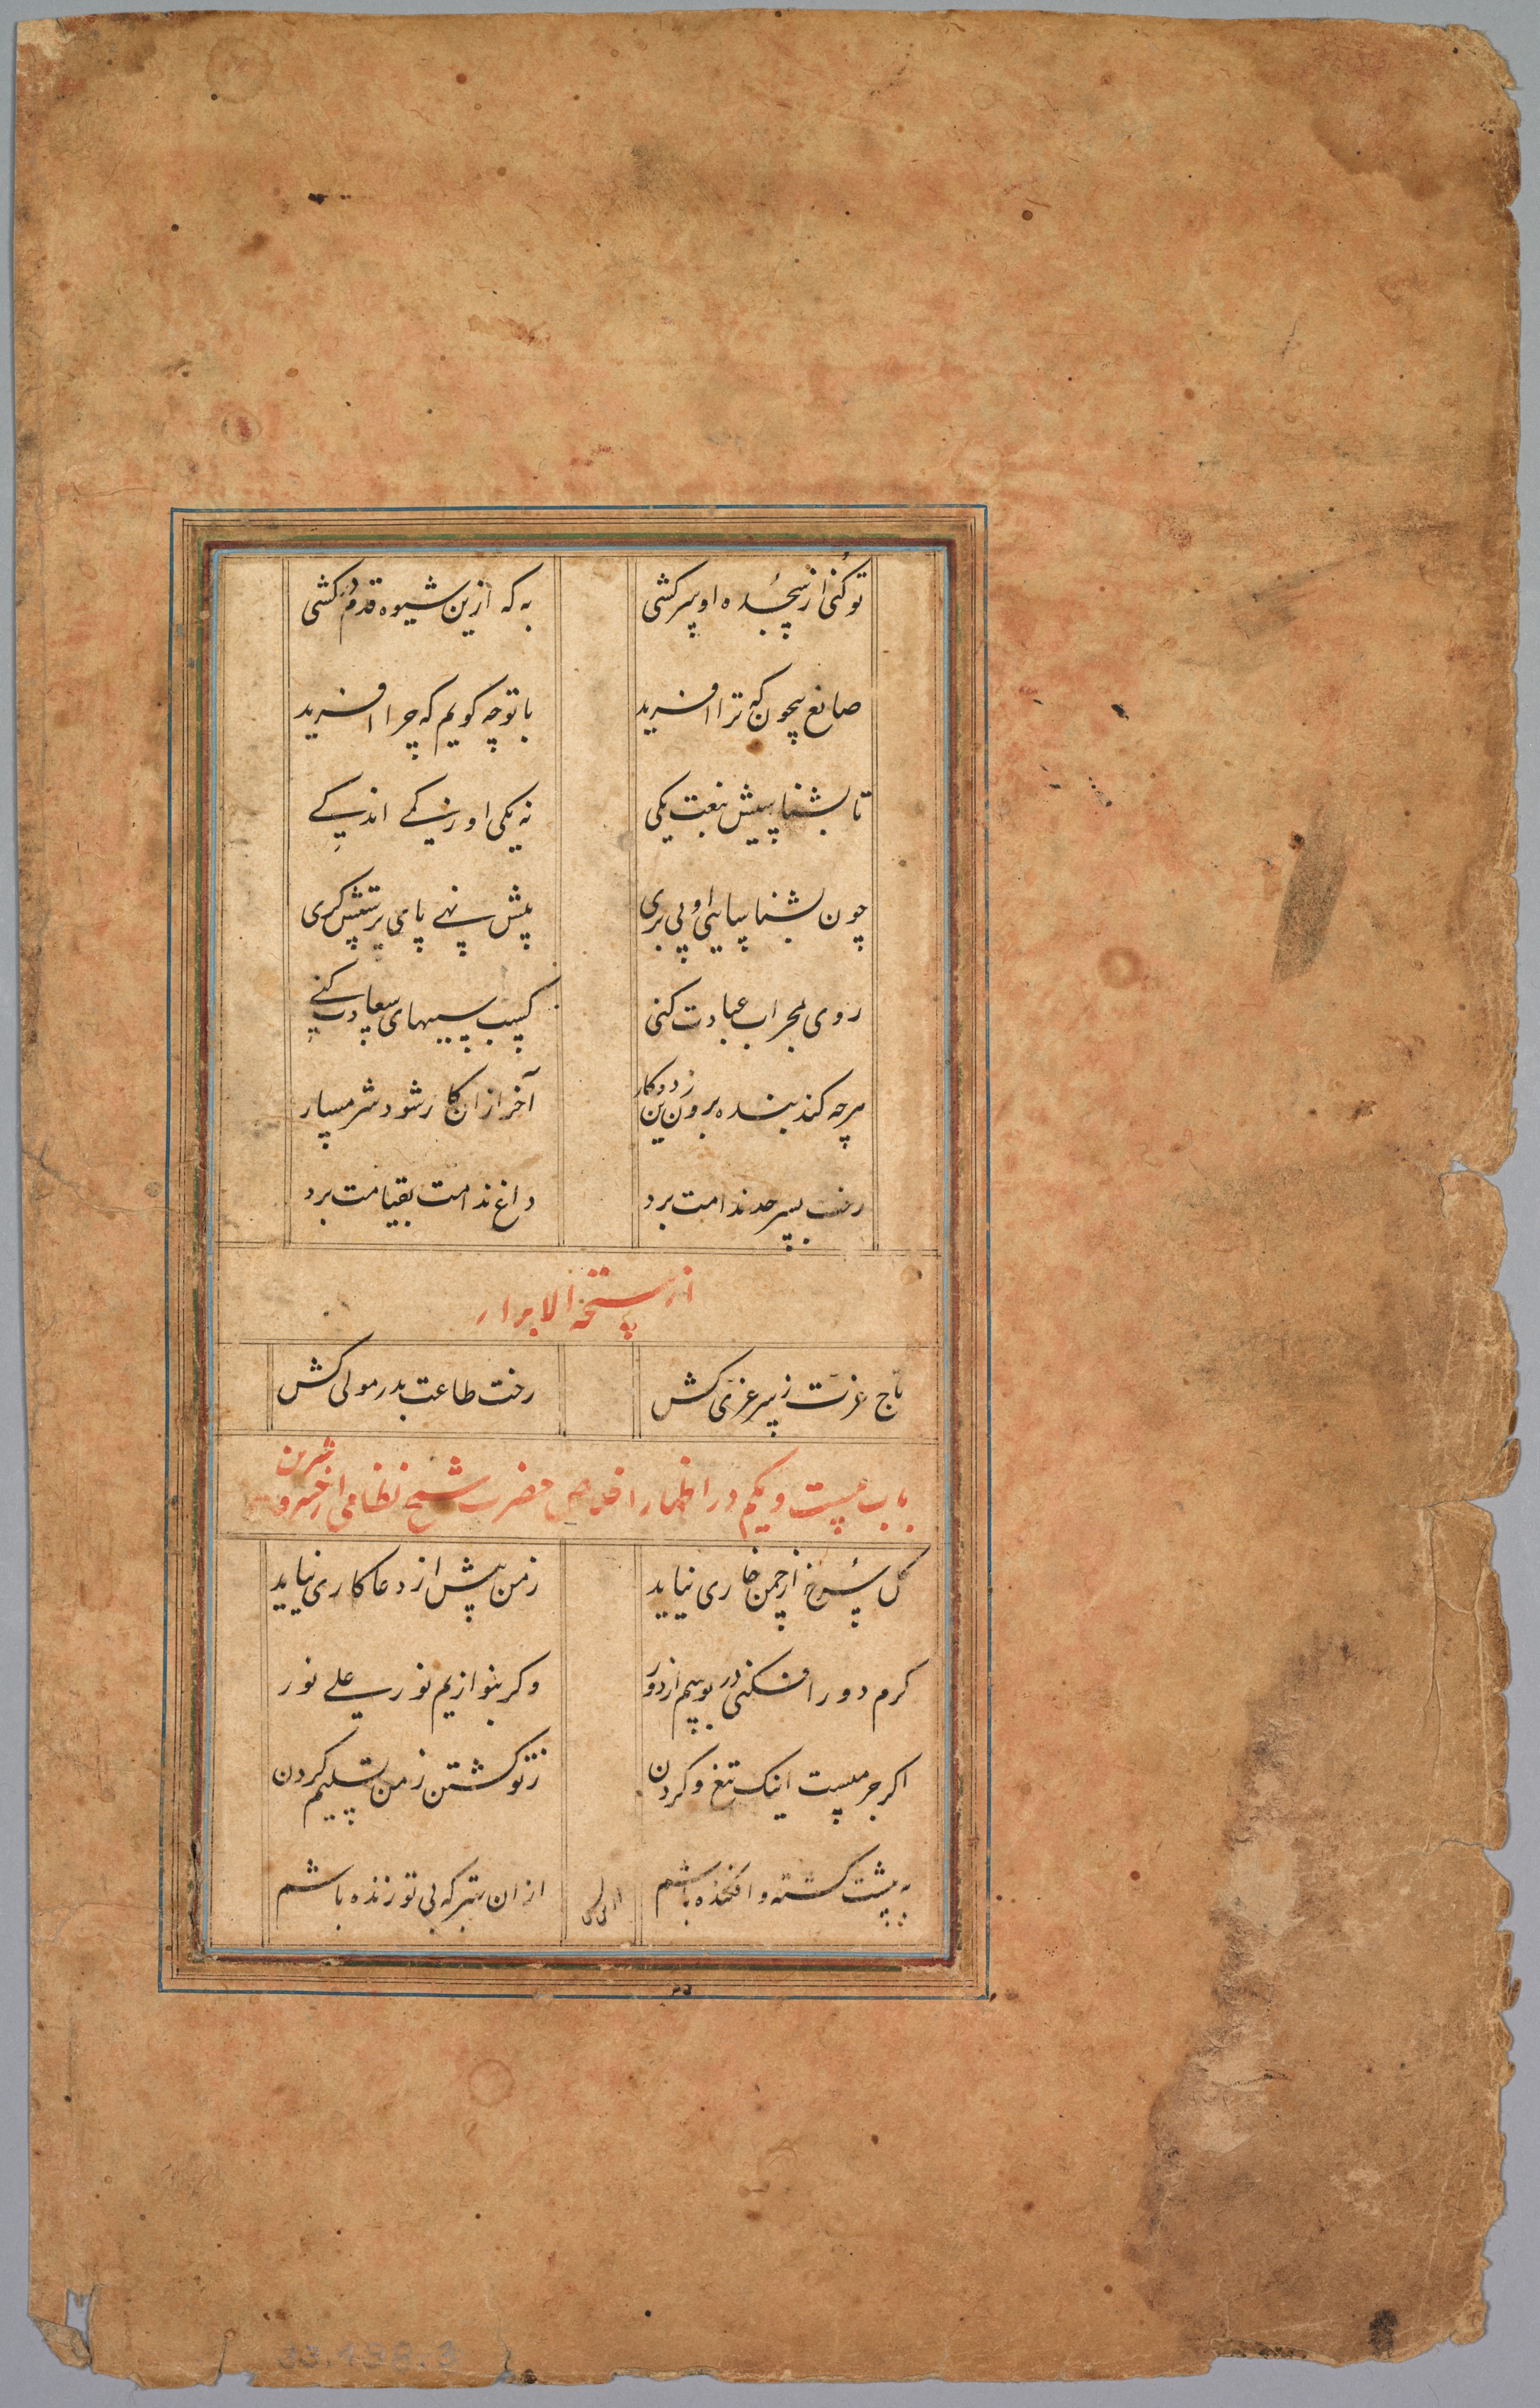 تو کنی از سجده او سرکشی به که ازین شیوه قدم در کشی
صانع بیچون که ترا آفرید با تو چه گویم که چرا آفرید
تا بشناسیش بنعت یکی نه یکی او ز یکی اندکی
چون بشناسایی او پی بری پیش نهی پای پرستش گری
روی بمحراب عبادت کنی کسب سببهای سعادت کنی
هرچه کند بنده برون زین دو کار آخر از ان کار شود شرمسار
رخت بسرحد ندامت برد داغ ندامت بقیامت برد
از تحفة الابرار
تاج عزت ز سر عزی کش رخت طاعت بدر مولی کش
باب بیست و یکم در اظهار اخلاص حضرت شیخ نظامی از خسرو شیرین
گل سرخ از چمن خاری نیاید ز من بیش از دعا کاری نیاید
کرم دور افکنی در بوسم از دور وگر بنوازیم نور علی نور
اگر جرمیست اینک تیغ و گردن ز تو کشتن ز من تسلیم کردن
به پیشت کشته و افکنده باشم از ان بهتر که بی تو زنده باشم
33.138.3